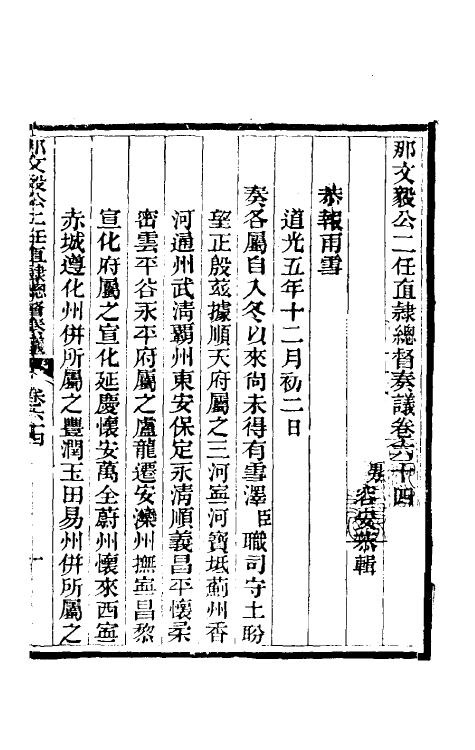 那文毅公二任直隸總督奏議卷六十四
男容安恭輯
恭報雨雪
道光五年十二月初二日
奏各屬自入冬以來尚未得有雪澤臣職司守土盼
望正殷茲據順天府屬之三河寗河寶坻薊州香
河通州武清霸州東安保定永清順義昌平懷柔
密雲平谷永平府屬之盧龍遷安灤州撫寗昌黎
宣化府屬之宣化延慶懷安萬全蔚州懷來西寗
赤城遵化州併所屬之豐潤玉田易州併所屬之
那文毅公二任直隸總督奏議 卷六十四 一